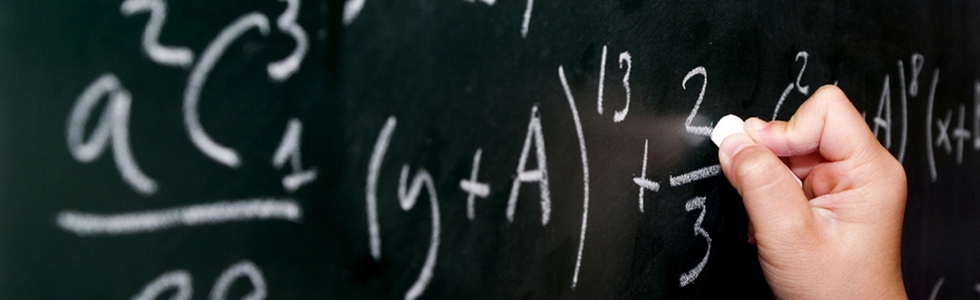 a²C³₁ (y+A)¹³ + 2/3 (² A)⁸ (x+